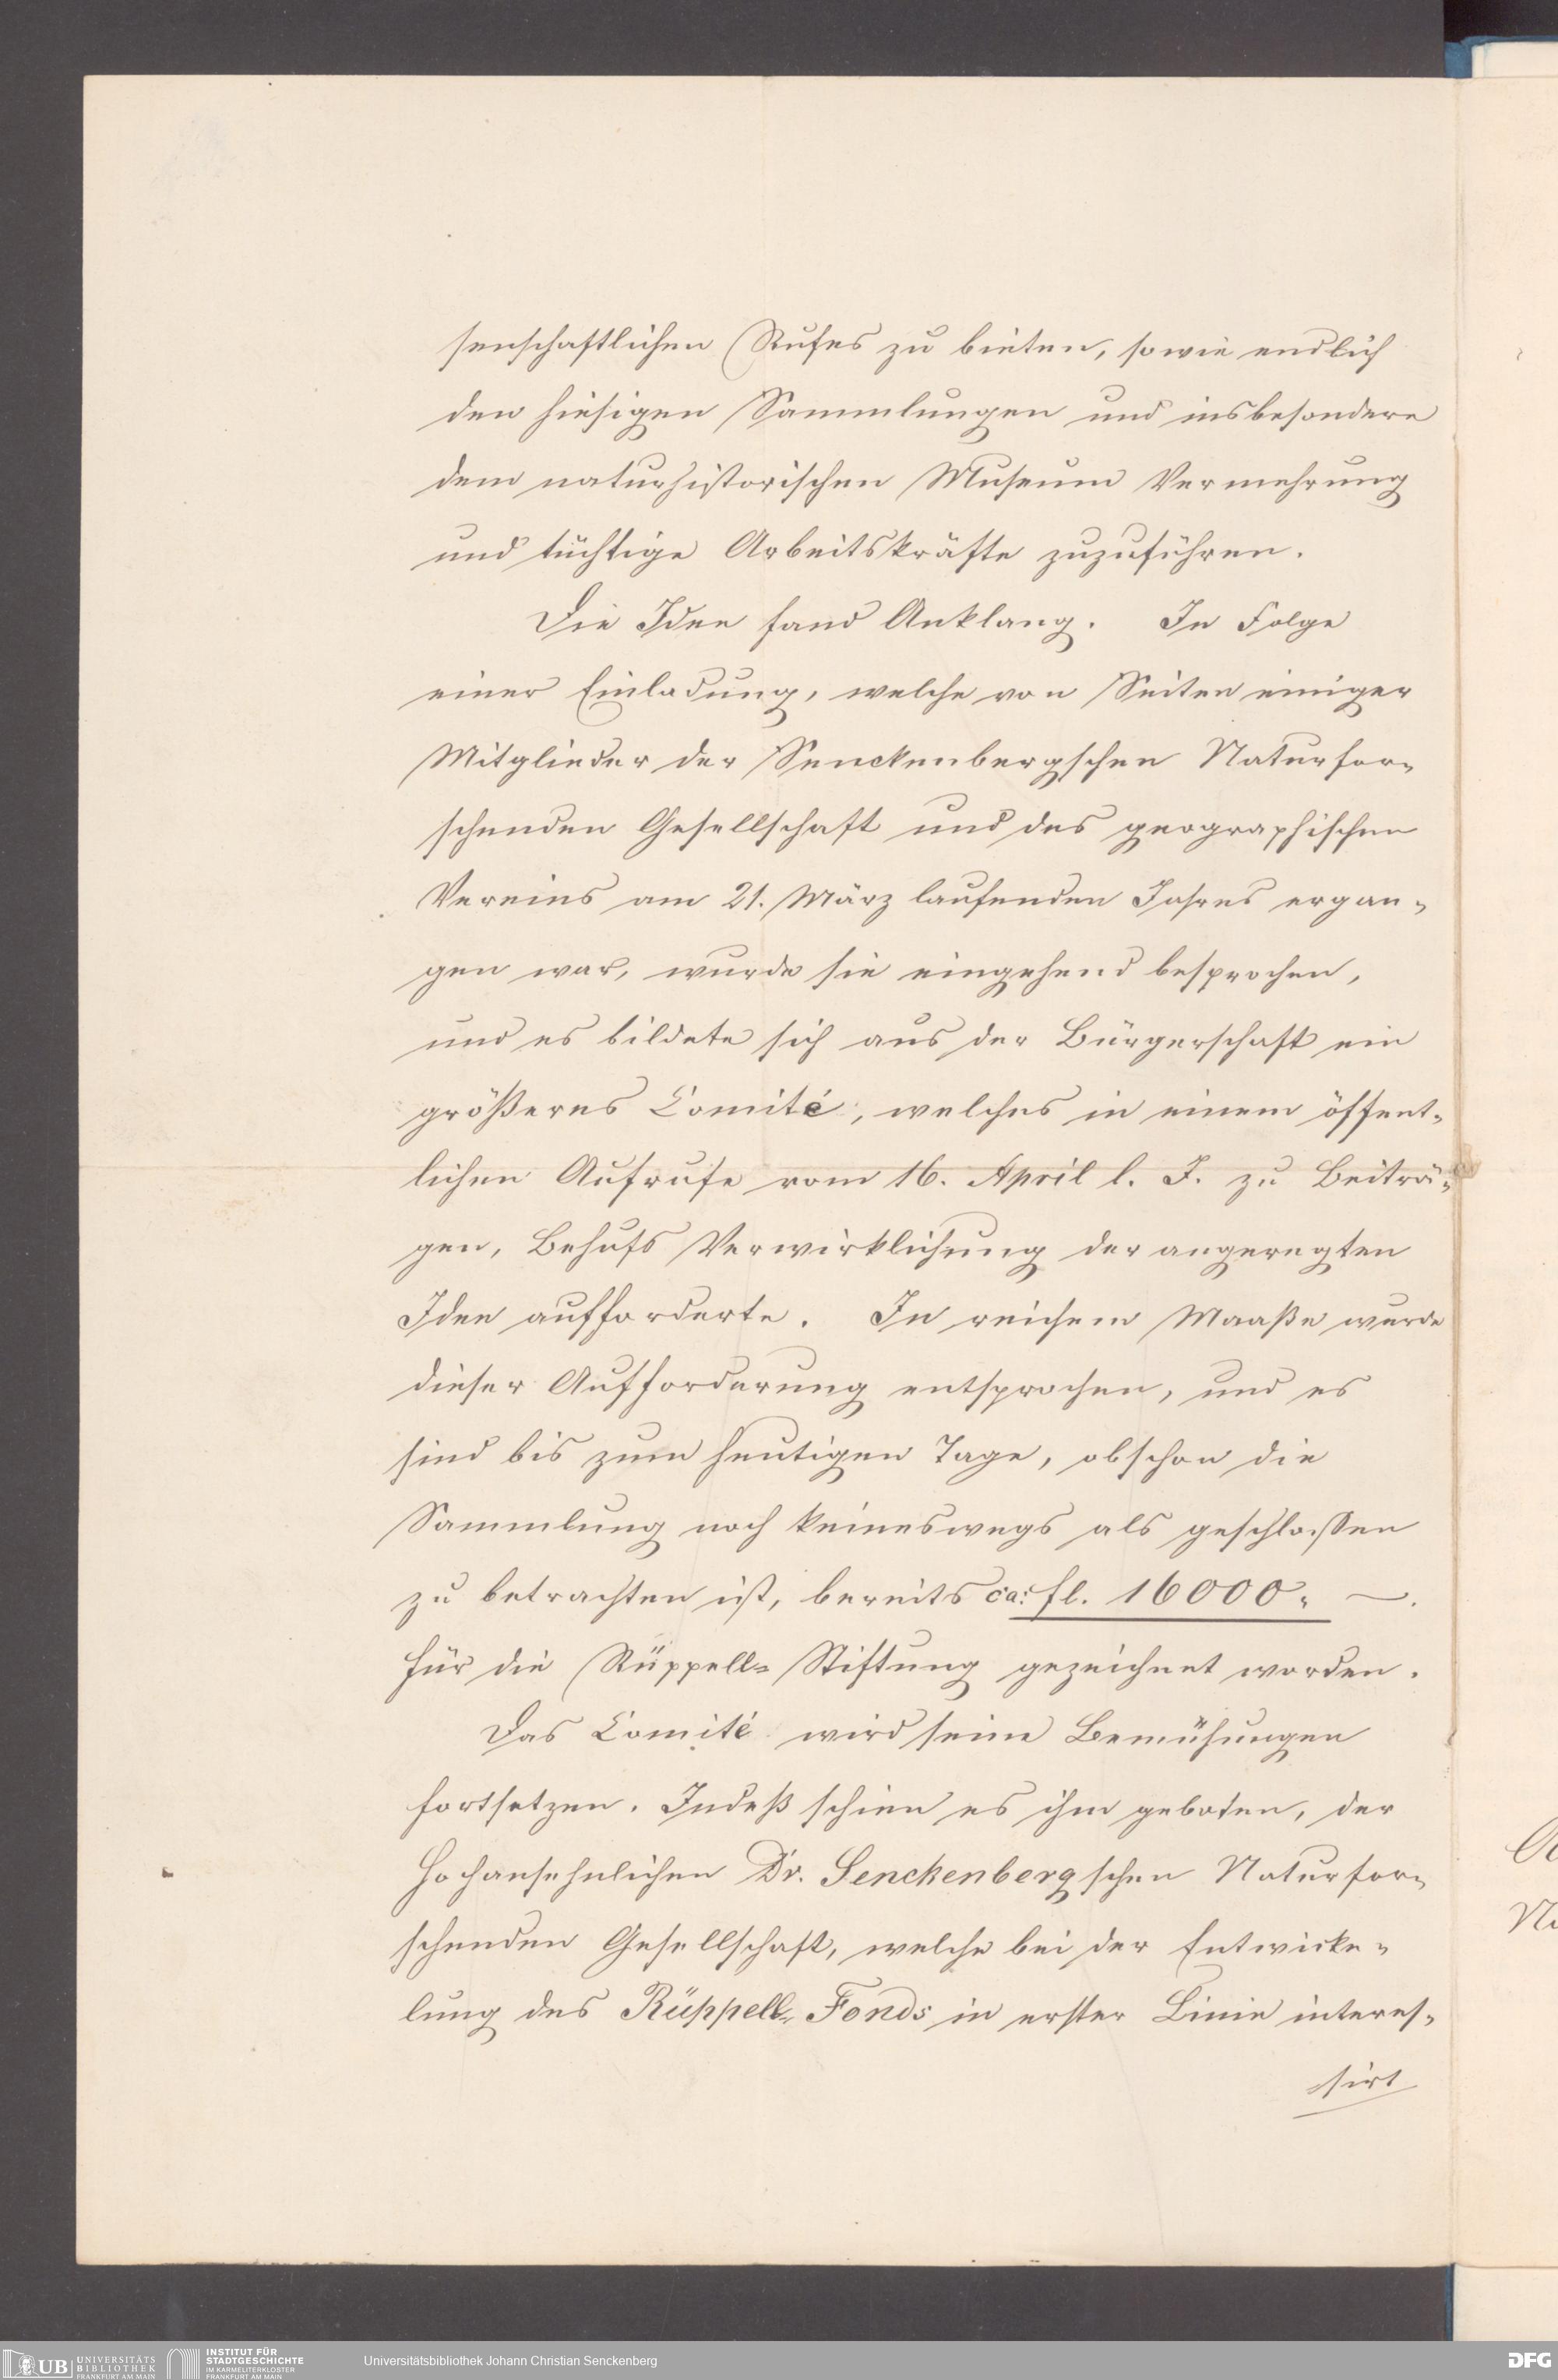 senschaftlichen Rufes zu bieten, sowie endlich
den hiesigen Sammlungen und insbesondere
dem naturhistorischen Museum Vermehrung
und tüchtige Arbeitskräfte zuzuführen.
Die Idee fand Anklang. In Folge
einer Einladung, welche von Seiten einiger
Mitglieder der Senckenbergschen Naturfor-
schenden Gesellschaft und des geographischen
Vereins am 21. März laufenden Jahres ergan-
gen war, wurde sie eingehend besprochen,
und es bildete sich aus der Bürgerschaft ein
größeres Comité, welches in einem öffent-
lichen Aufrufe vom 16. April l. J. zu Beiträ-
gen, Behufs Verwirklichung der angeregten
Idee aufforderte. In reichem Maaße wurde
dieser Aufforderung entsprochen, und es
sind bis zum heutigen Tage, obschon die
Sammlung noch keineswegs als geschlossen
zu betrachten ist, bereits ca: fl. 16000. —.
für die Rüppell-Stiftung gezeichnet worden.
Das Comité wird seine Bemühungen
fortsetzen. Indeß schien es ihm geboten, der
Hochansehnlichen Dr. Senckenbergschen Naturfor-
schenden Gesellschaft, welche bei der Entwicke-
lung des Rüppell-Fonds in erster Linie interes-
sirt
UB UNIVERSITÄTS BIBLIOTHEK FRANKFURT AM MAIN
INSTITUT FÜR STADTGESCHICHTE IM KARMELITERKLOSTER FRANKFURT AM MAIN
Universitätsbibliothek Johann Christian Senckenberg
DFG